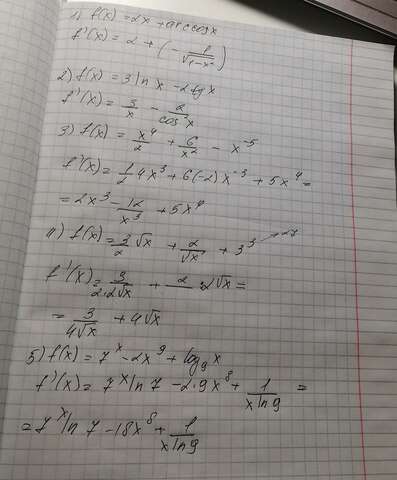 1) f(x) = 2x + arccosx
f'(x) = 2 + (- 1/√1-x²)
2) f(x) = 3ln x - 2tgx
f'(x) = 3/x - 2/cos²x
3) f(x) = x⁴/2 + 6/x² - x⁻⁵
f'(x) = 1/2 4x³ + 6(-2)x⁻³ + 5x⁴ =
= 2x³ - 12/x³ + 5x⁴
4) f(x) = 3/2 √x + 2/√x + 3³ → 27
f'(x) = 3/2·2√x + 2 2√x =
= 3/4√x + 4√x
5) f(x) = 7ˣ - 2x⁹ + log₉ x
f'(x) = 7ˣ ln 7 - 2·9x⁸ + 1/x ln 9 =
= 7ˣ ln 7 - 18x⁸ + 1/x ln 9